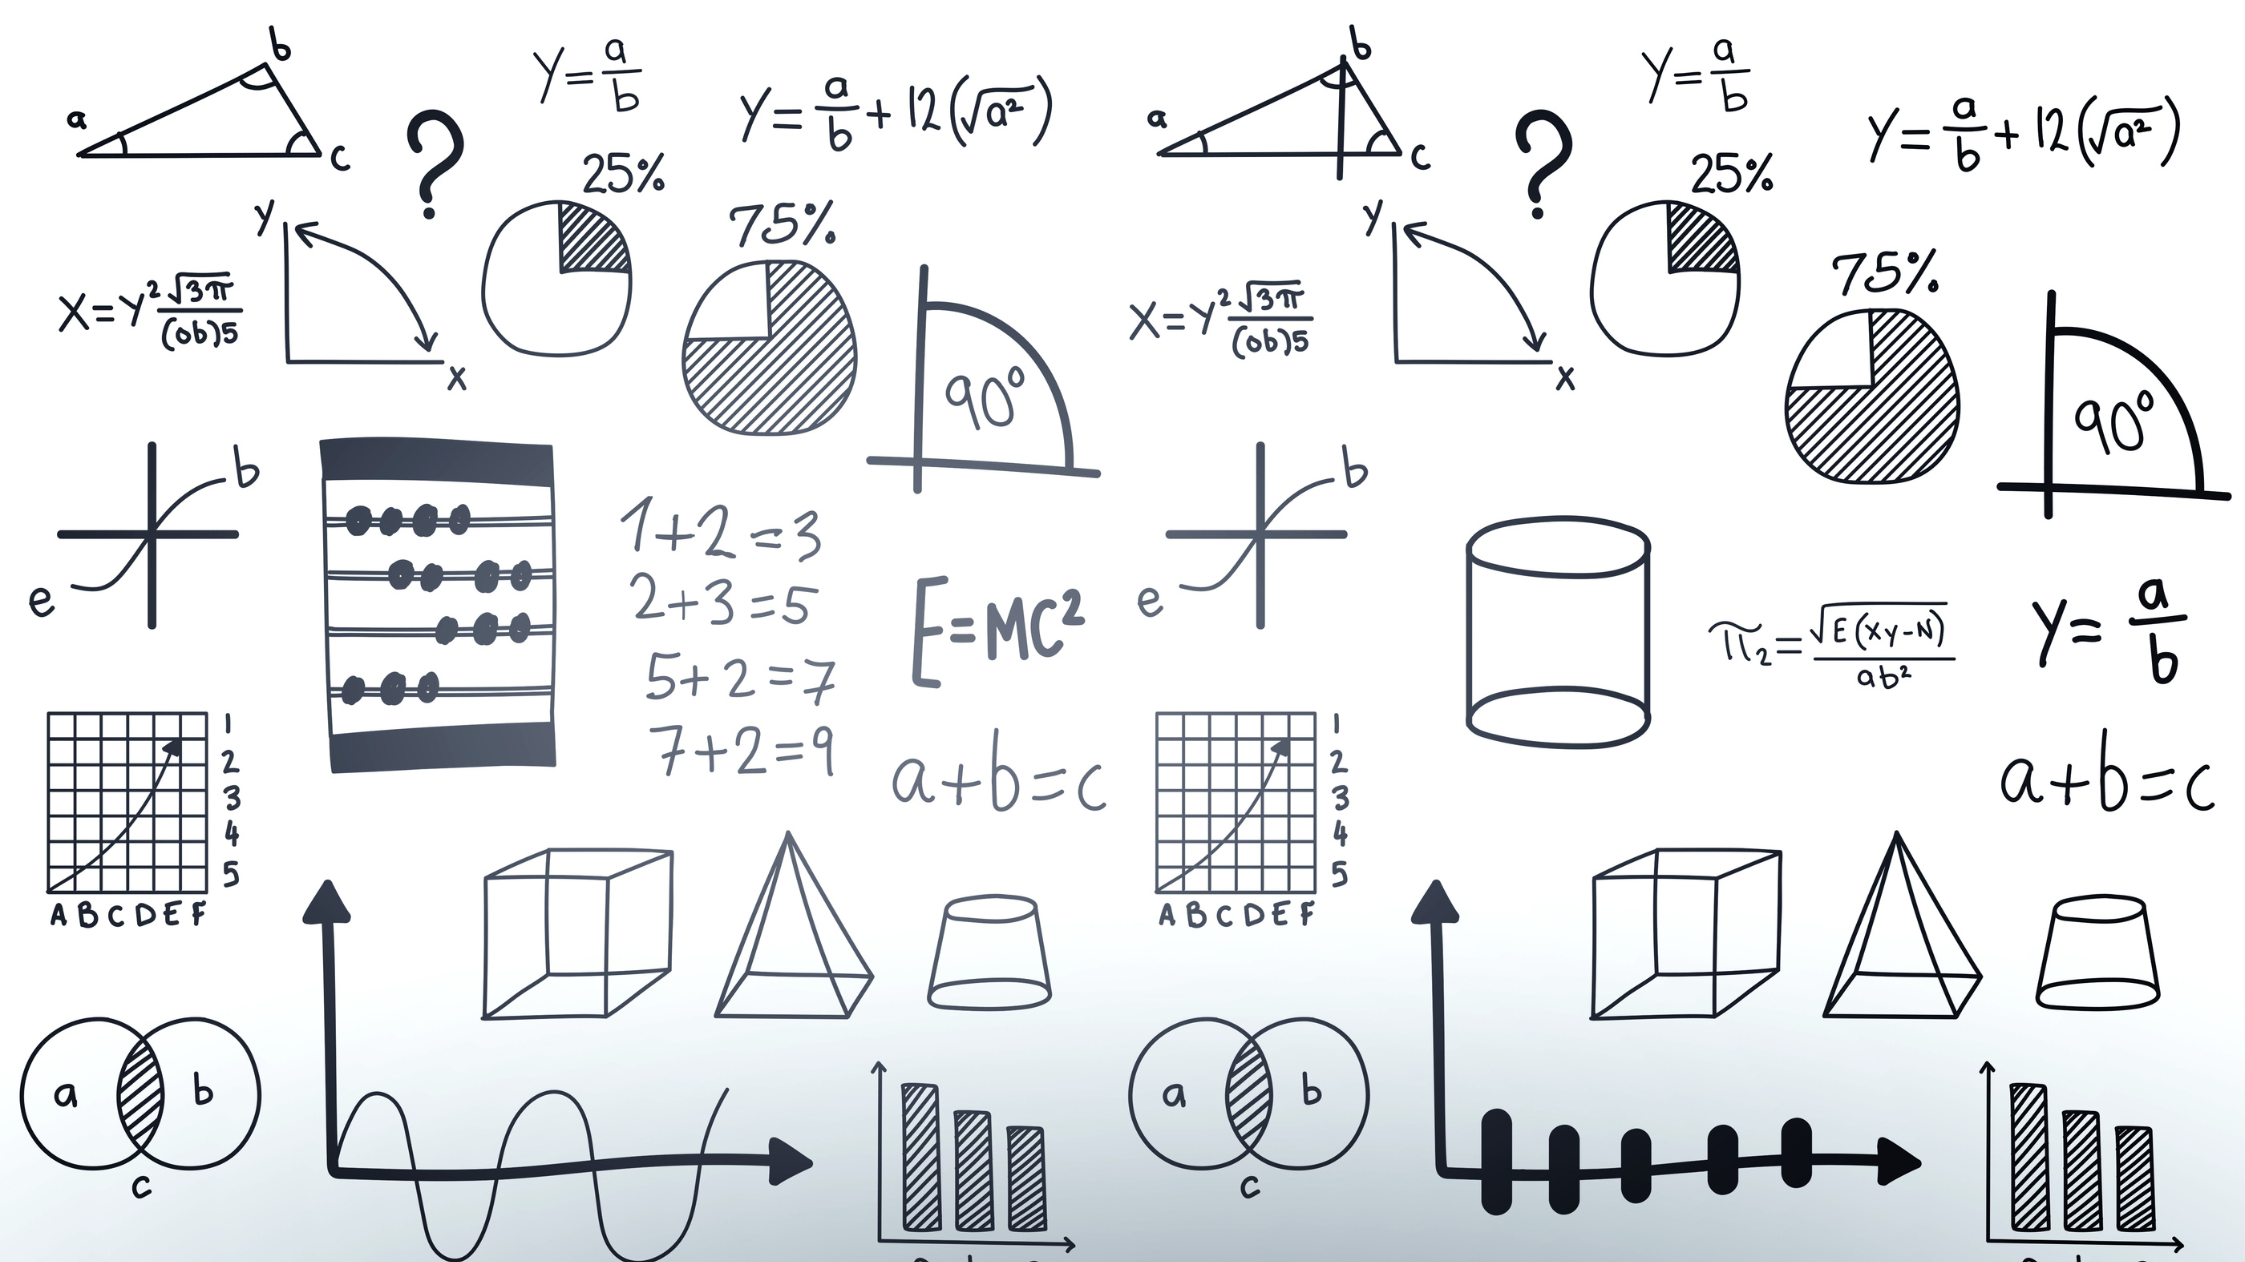 b
a
c
?
Y=a/b
Y=a/b+12(√a²)
25%
75%
y
x
X=Y²√3π/(ob)5
90°
b
e
1+2=3
2+3=5
5+2=7
7+2=9
E=MC²
a+b=c
1
2
3
4
5
A B C D E F
a
b
c
b
a
c
?
Y=a/b
Y=a/b+12(√a²)
25%
75%
y
x
X=Y²√3π/(ob)5
90°
b
e
π₂=√E(xy-N)/ab²
Y=a/b
a+b=c
1
2
3
4
5
A B C D E F
a
b
c